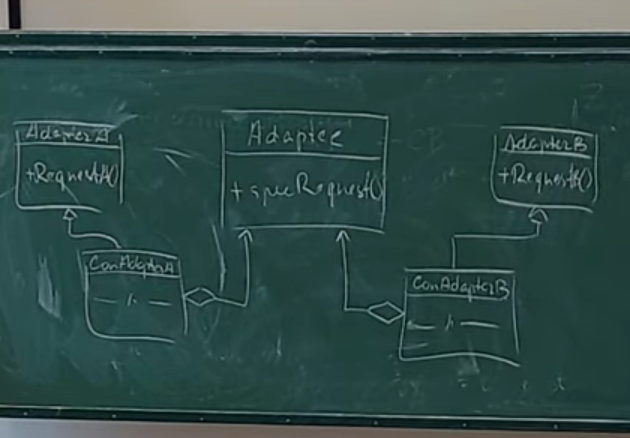 AdapterA
+RequestA()
Adaptee
+specRequest()
AdapterB
+RequestB()
ConAdapterA
— 〃 —
ConAdapterB
— 〃 —